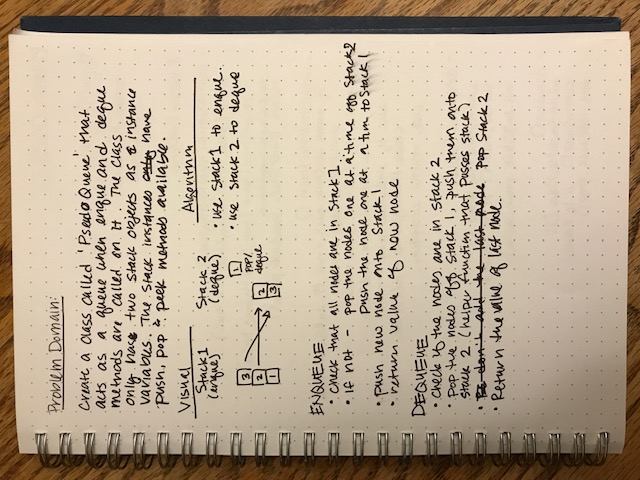 Problem Domain:
Create a class called 'PsedoQueue' that
acts as a queue when enque and deque
methods are called on it. The class
only has two stack objects as instance
variables. The stack instances only have
push, pop & peek methods available.
Visual
Algorithm
Stack 1
(enque)
Stack 2
(deque)
• use Stack 1 to enque.
• use Stack 2 to deque
3
2
1
1
pop/
deque
2
3
ENQUEUE
• Check that all nodes are in Stack 1.
• if not - pop the nodes one at a time off Stack 2
push the node one at a tim to Stack 1
• push new node onto Stack 1
• return value of new node
DEQUEUE
• Check if the nodes are in stack 2
• Pop the nodes off stack 1, push them onto
stack 2. (helper function that passes stack)
• don't add the last node pop Stack 2
• Return the value of last node.